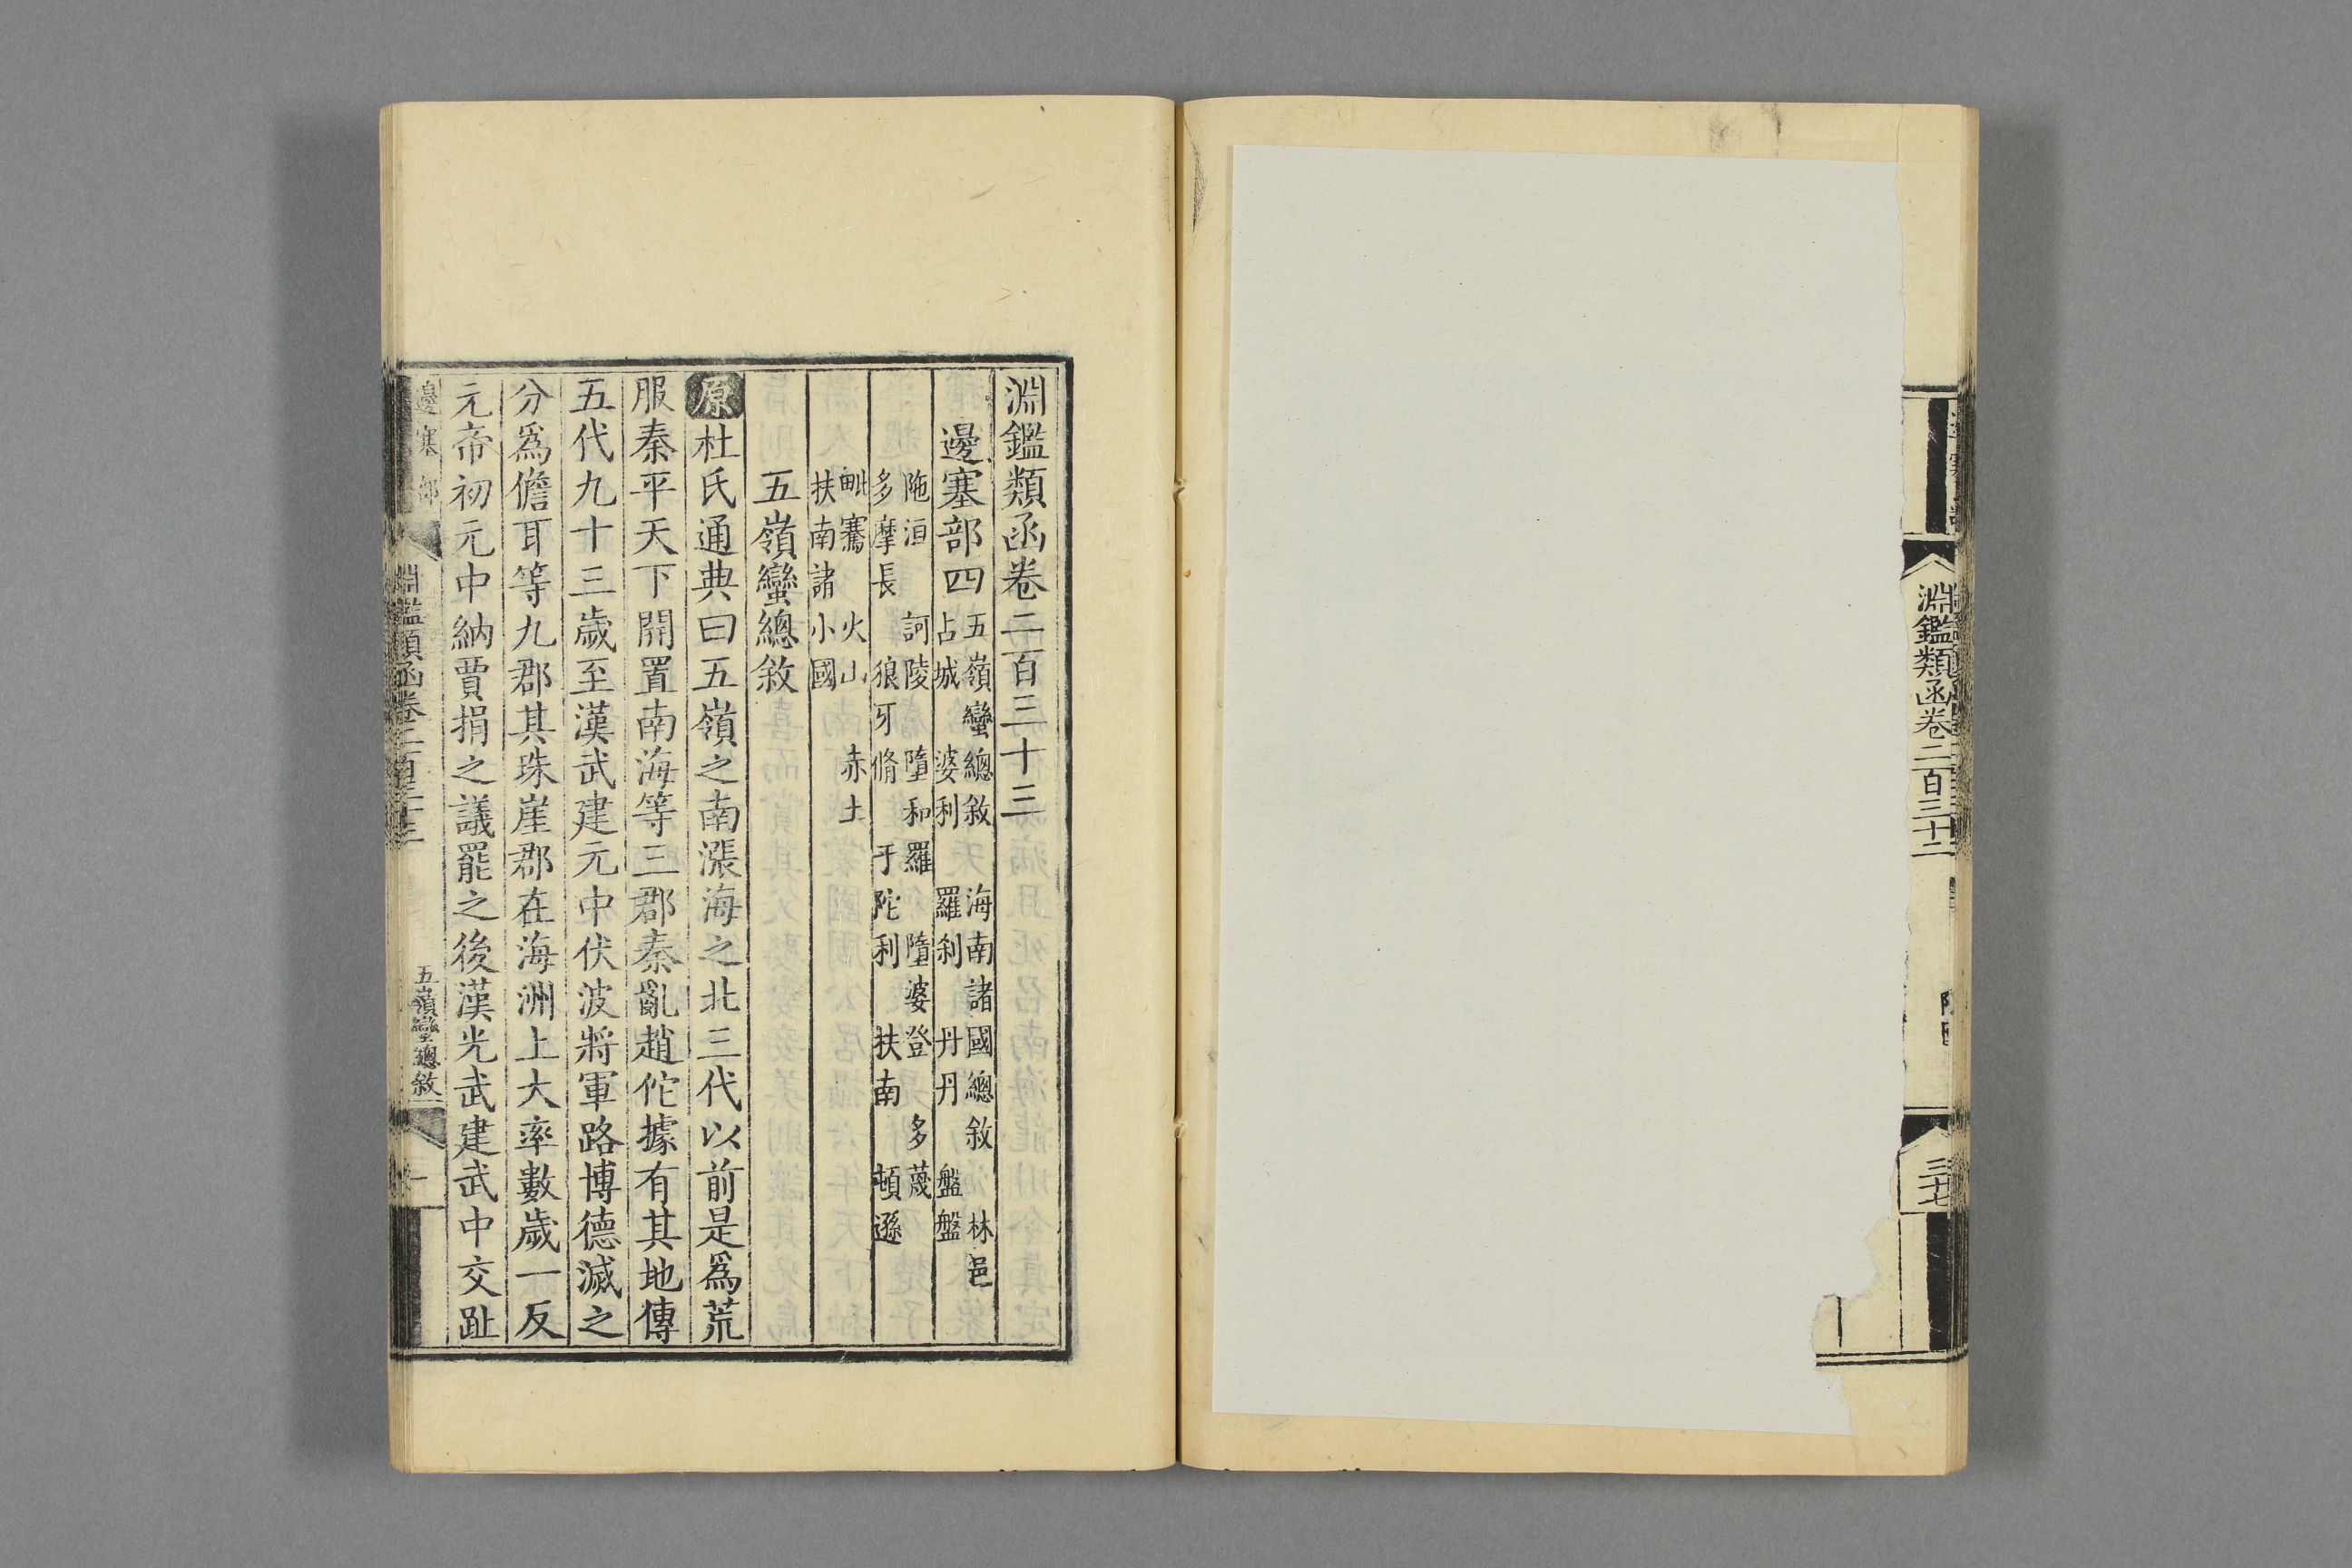 淵鑑類函卷二百三十二
三十七
淵鑑類函卷二百三十三
邊塞部四
五嶺蠻總敘 海南諸國總敘 林邑
占城 婆利 羅刹 丹丹 盤盤
陁洹 訶陵 墮和羅 墮婆登 多蔑
多摩長 狼牙脩 于陀利 扶南 頓遜
毗騫 火山 赤土
扶南諸小國
五嶺蠻總敘
原杜氏通典曰五嶺之南漲海之北三代以前是爲荒
服秦平天下開置南海等三郡秦亂趙佗據有其地傳
五代九十三歲至漢武建元中伏波將軍路博德滅之
分爲儋耳等九郡其珠崖郡在海洲上大率數歲一反
元帝初元中納賈捐之議罷之後漢光武建武中交趾
邊塞部
淵鑑類函卷二百三十三
五嶺蠻總敘
一